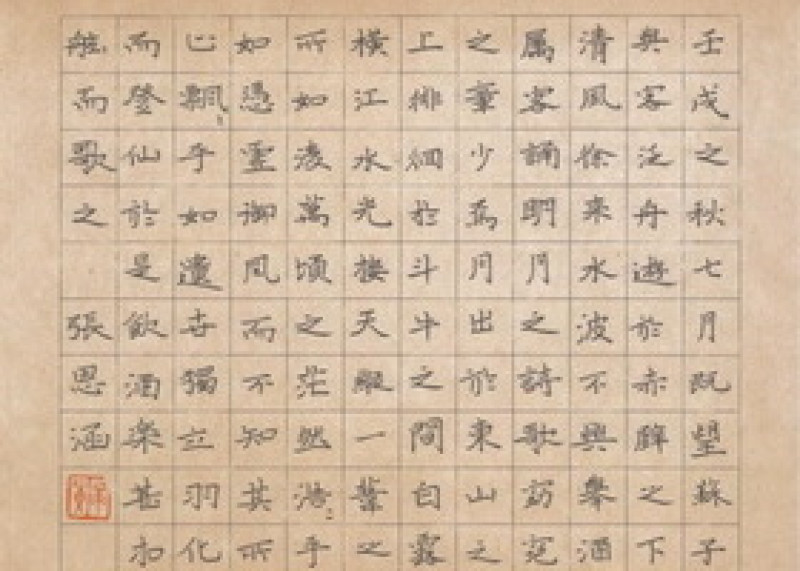 壬戌之秋七月既望蘇子
與客泛舟遊於赤壁之下
清風徐來水波不興舉酒
属客誦明月之詩歌窈窕
之章少焉月出於東山之
上徘徊於斗牛之間白露
橫江水光接天縱一葦之
所如凌萬頃之茫然浩〻乎
如憑虛御風而不知其所
止飄〻乎如遺世獨立羽化
而登仙於是飲酒樂甚扣
舷而歌之 張思涵